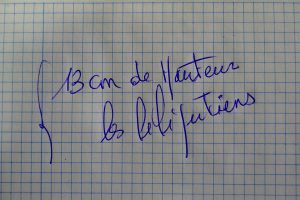 13 cm de Hauteur
les lilliputiens